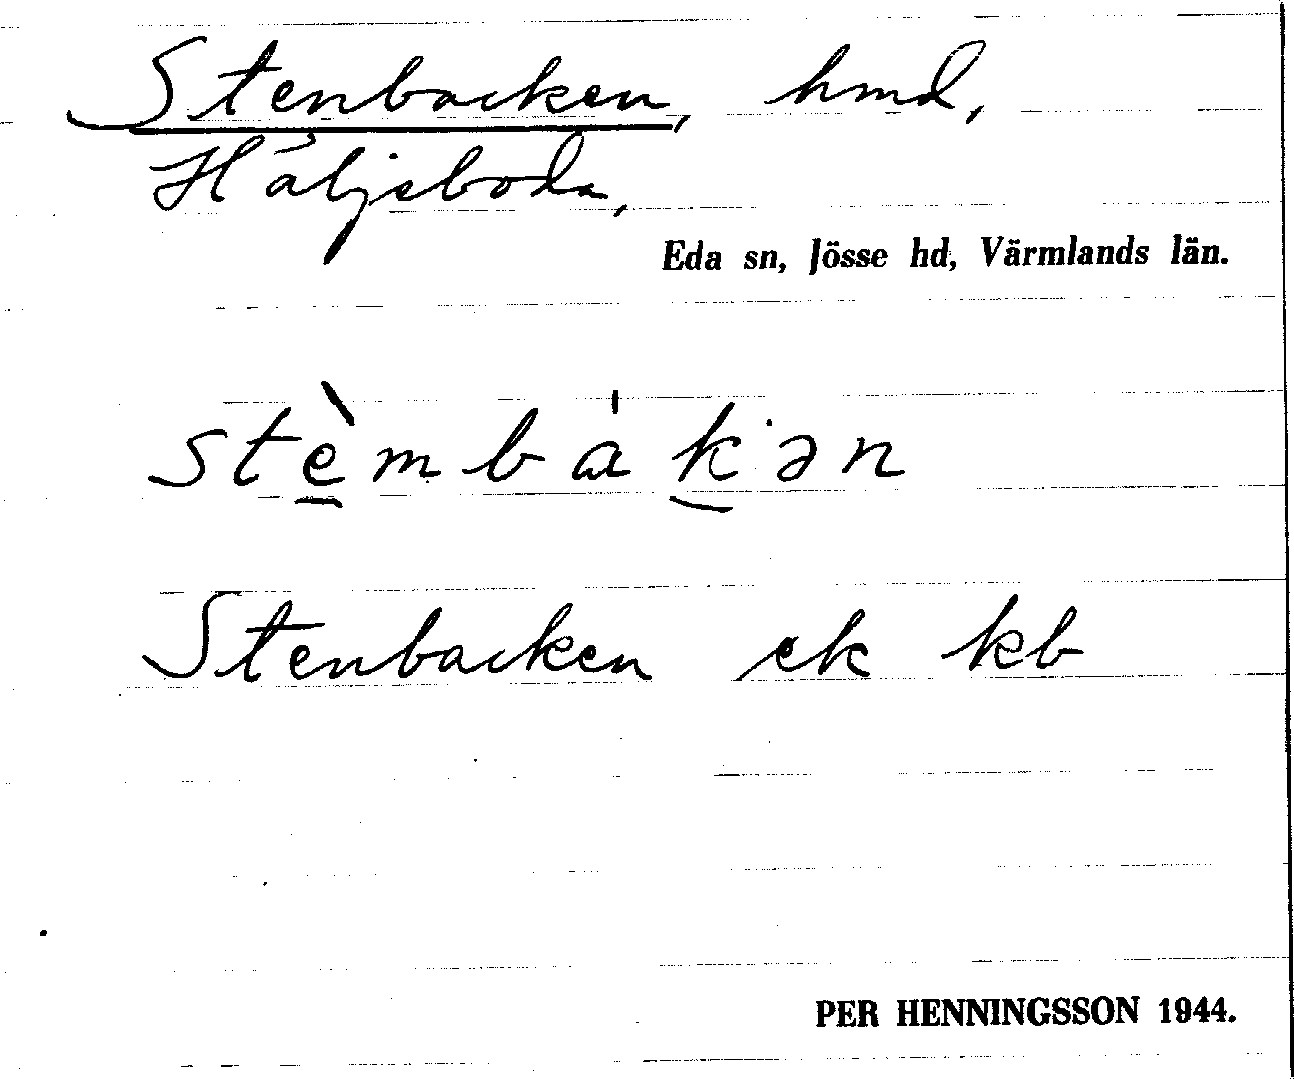 Stenbacken, hmd,
Häljeboda,
Eda sn, Jösse hd, Värmlands län.
stèmbàk·ən
Stenbacken ek kb
PER HENNINGSSON 1944.